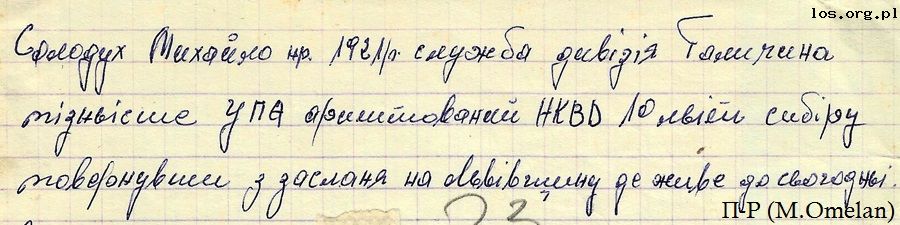 los.org.pl
Солодух Михайло нр. 1921р. служба дивізія Галичина
пізньіше УПА ариштований НКВD 10 льіт сибіру
повернувши з засланя на Львівщину де живе до сьогодні.
23
П-Р (M.Omelan)